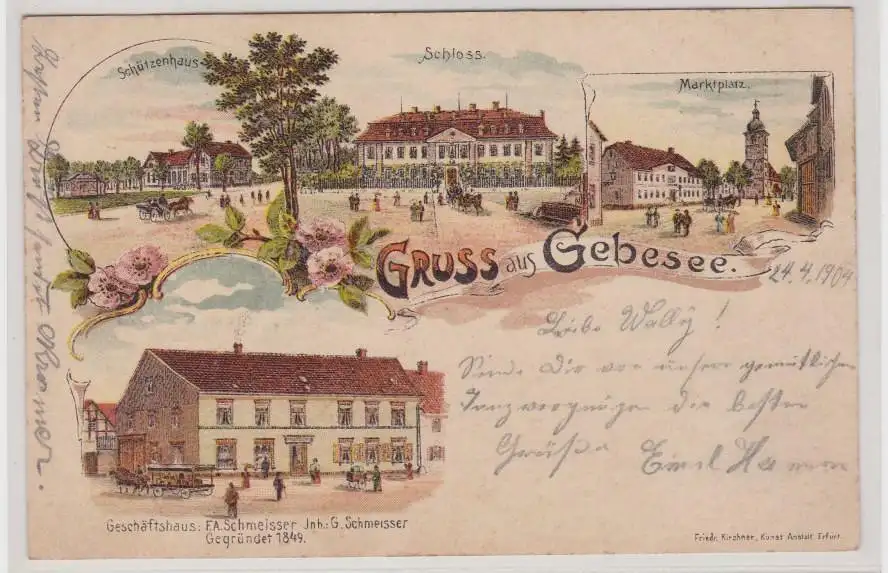 Schützenhaus
Schloss.
Marktplatz.
GRUSS aus Gebesee.
24.4.1904
Liebe Wally!
Sende Dir von unserm gemütlichen
Tanzvergnügen die besten
Grüße Emil
Geschäftshaus: F.A. Schmeisser Jnh.: G. Schmeisser
Gegründet 1849.
Friedr. Kirchner, Kunst Anstalt Erfurt.